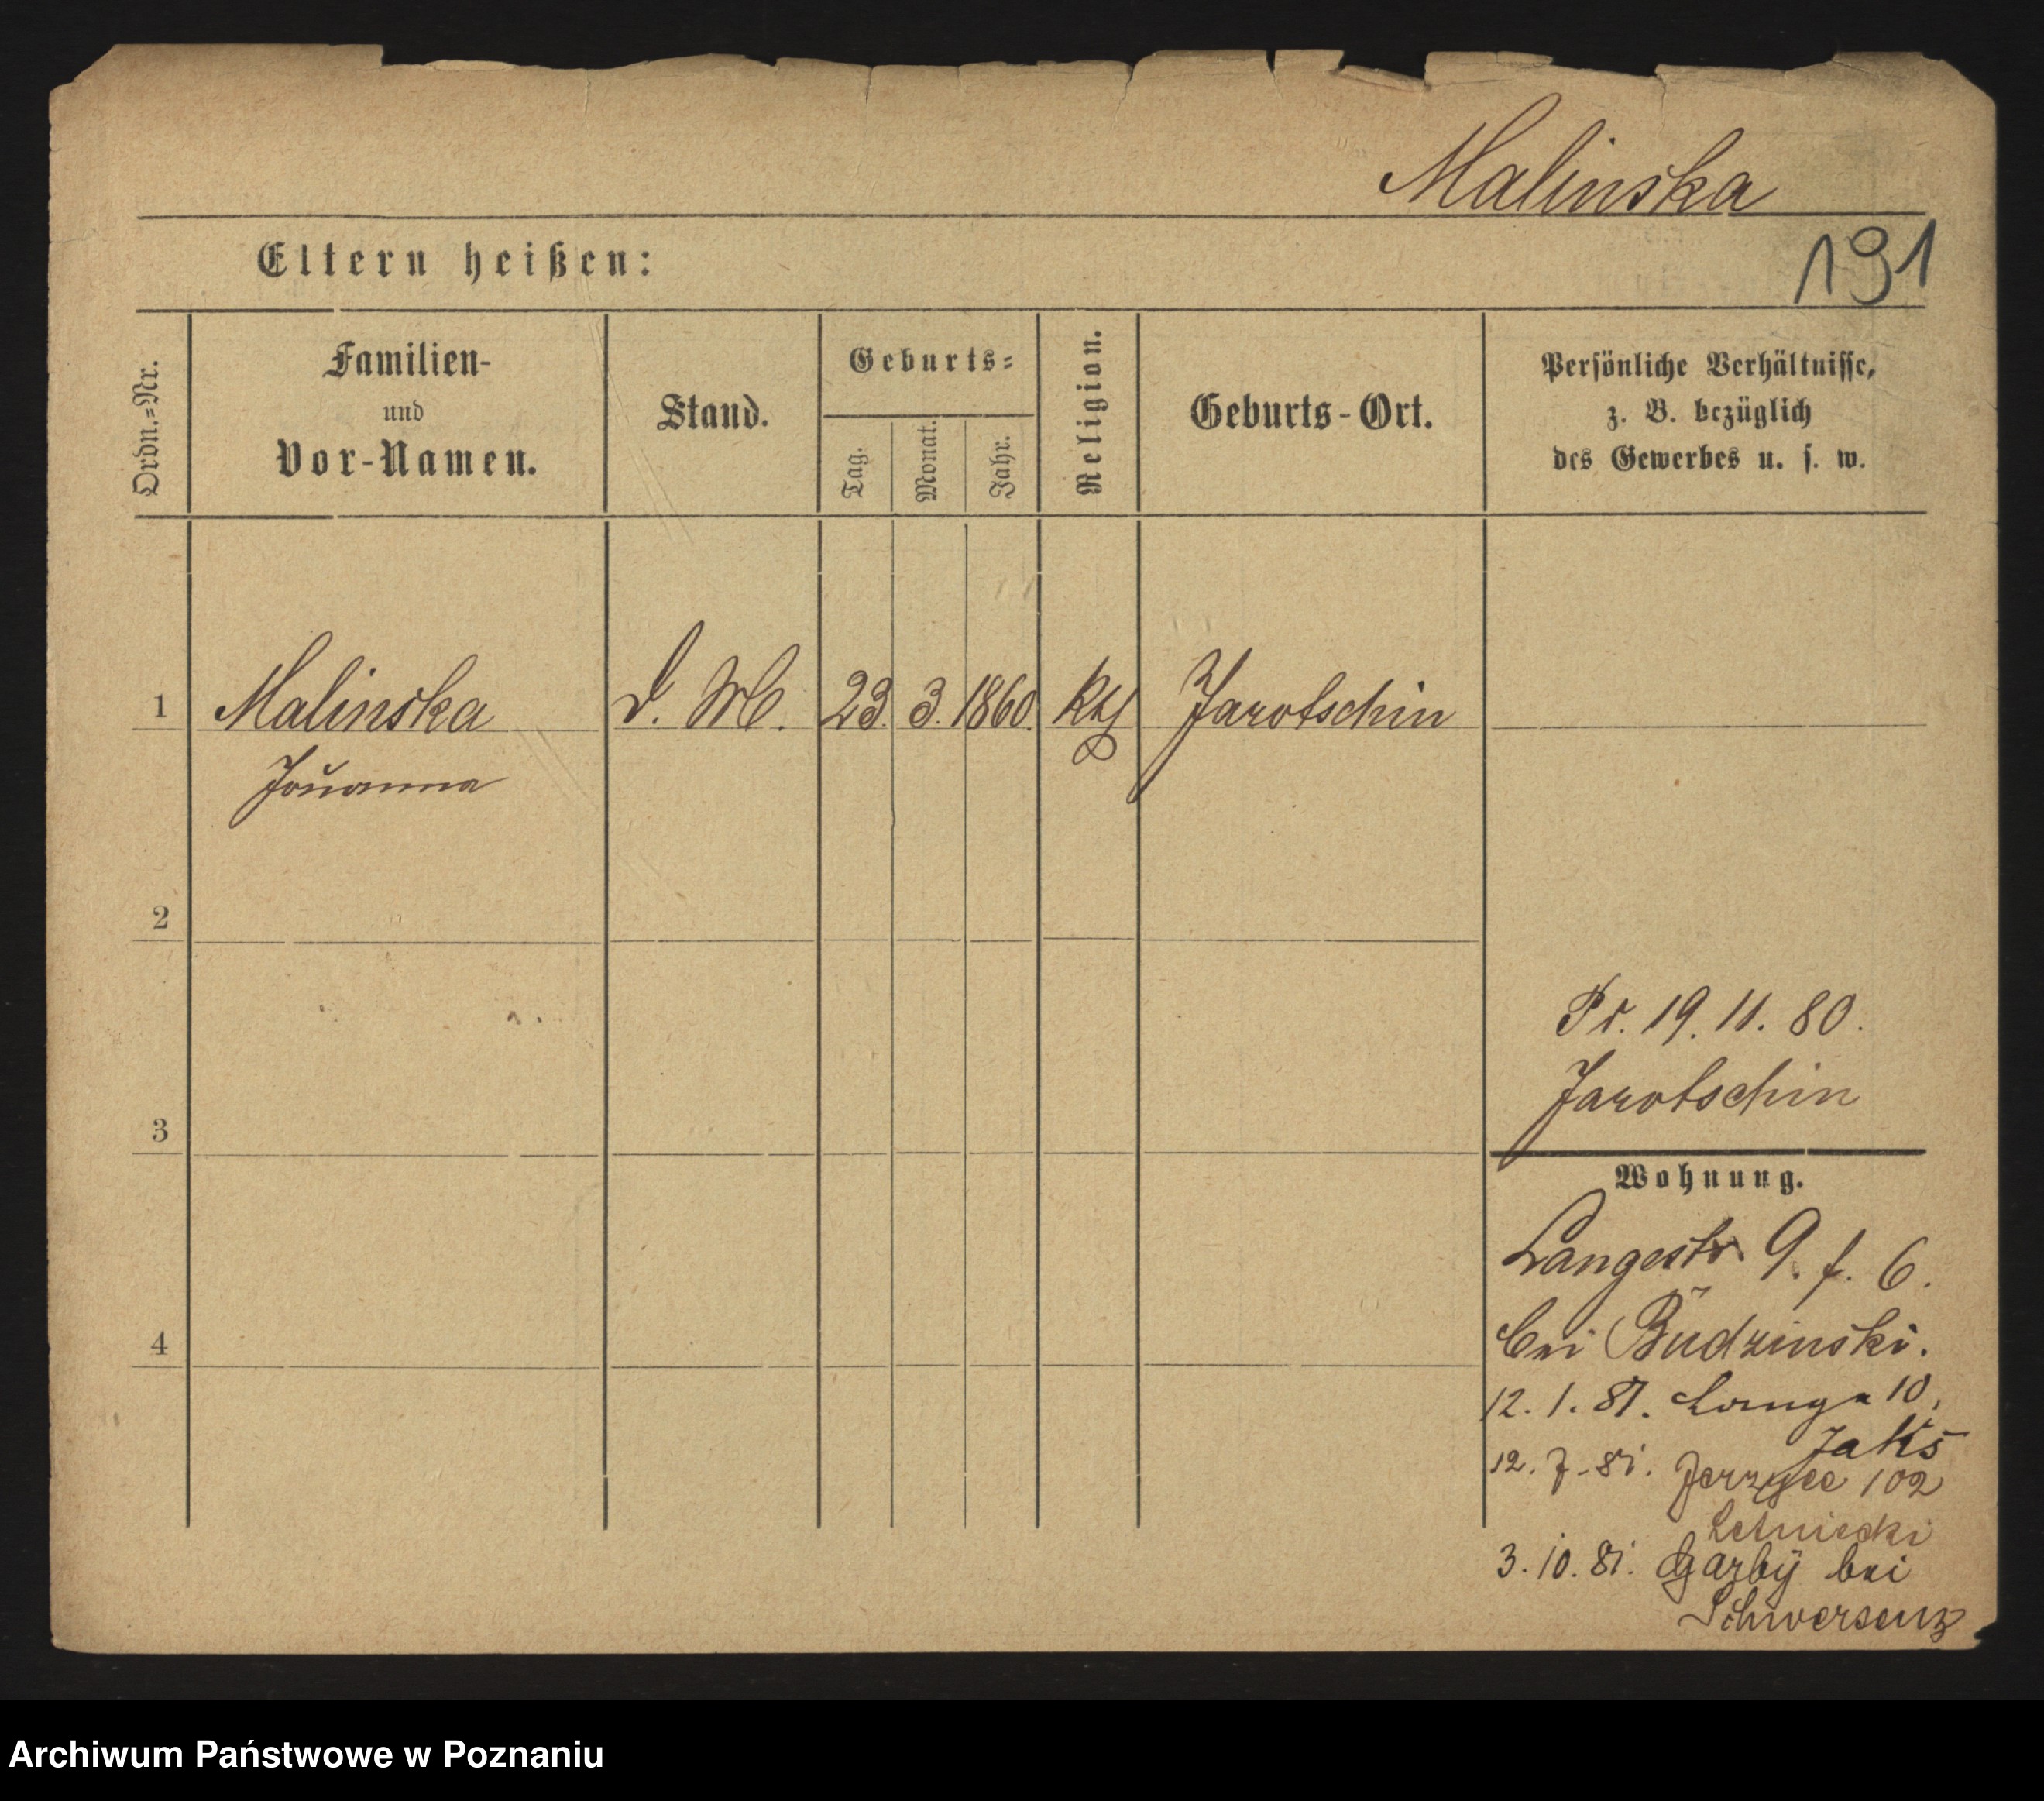 Malinska
191
Eltern heißen:
Ordn.=Nr.
Familien-
und
Vor-Namen.
Stand.
Geburts=
Tag.
Monat.
Jahr.
Religion.
Geburts-Ort.
Persönliche Verhältnisse,
z. B. bezüglich
des Gewerbes u. s. w.
1 Malinska D. M. 23. 3. 1860. kth Jarotschin
2
Pr. 19. 11. 80.
Jarotschin
3
Wohnung.
Langestr. 9. f. 6.
bei Budzinski.
4
12. 1. 81. Lange 10,
Jaks
12. 7. 81. Jerzyce 102
3. 10. 81. Garby bei
Schwersenz
Archiwum Państwowe w Poznaniu